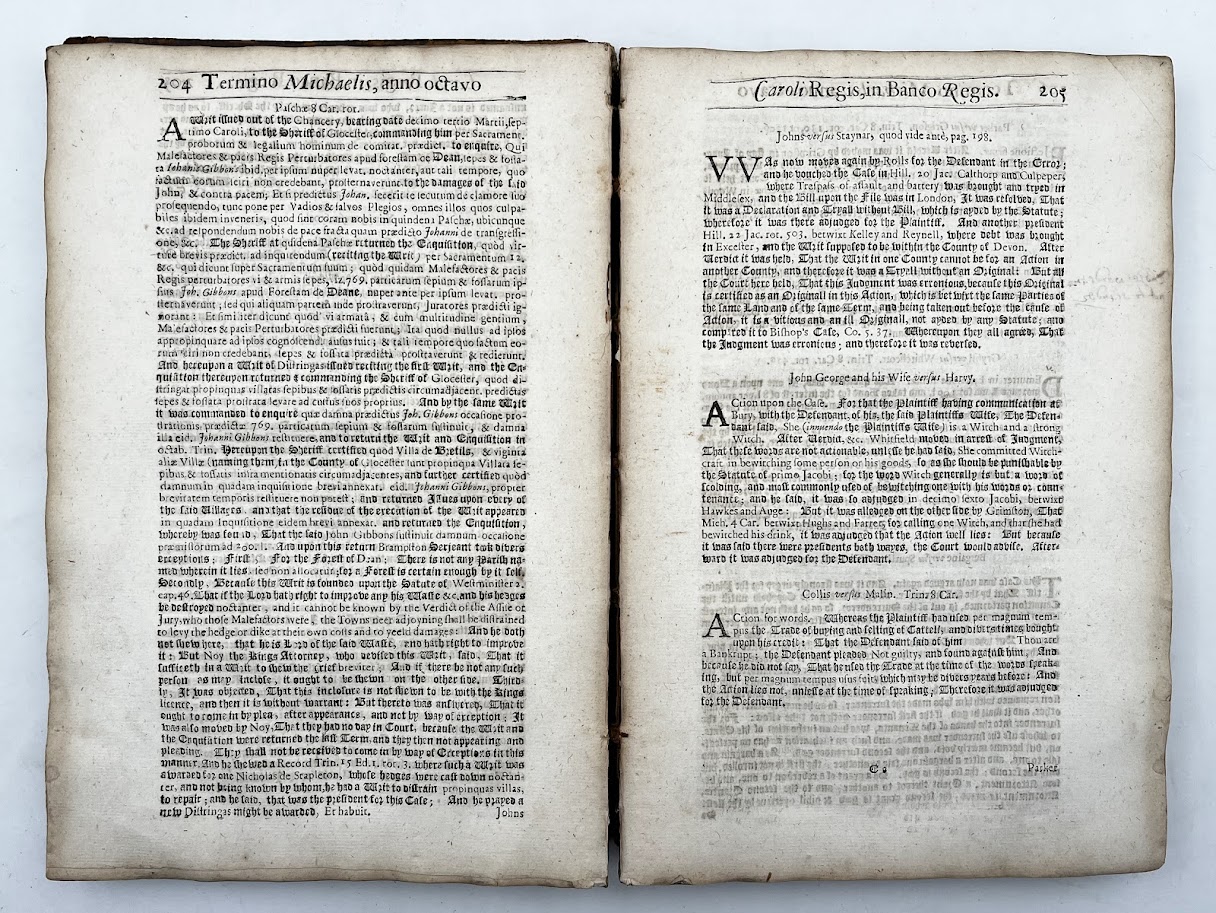 204 Termino Michaelis, anno octavo
Paschæ 8 Car. rot.
A Writ issued out of the Chancery, bearing date decimo tertio Martii, sep-
timo Caroli, to the Shariff of Glocester, commanding him per Sacrament.
proborum & legalium hominum de comitat. prædict. to enquire, Qui
Malefactores & pacis Regis Perturbatores apud forestam de Dean, sepes & fossa-
ta Johanis Gibbons ibid. per ipsum nuper levat. noctanter, aut tali tempore, quo
factum eorum sciri non credebant, prosternaverunt to the damages of the said
John, & contra pacem; Et si prædictus Johan. fecerit te securum de clamore suo
prosequendo, tunc pone per Vadios & salvos Plegios, omnes illos quos culpa-
biles ibidem inveneris, quod sint coram nobis in quindena Paschæ, ubicunque
&c. ad respondendum nobis de pace fracta quam prædicto Johanni de transgressi-
one, &c. The Shariff at quidena Paschæ returned the Enquisition, quod vir-
tute brevis prædict. ad inquirendum (reciting the Writ) per Sacramentum 12,
&c. qui dicunt super Sacramentum suum; quod quidam Malefactores & pacis
Regis perturbatores vi & armis sepes, viz. 769. particarum sepium & fossarum ip-
sius Joh. Gibbons apud Forestam de Deane, nuper ante per ipsum levat. pro-
sternaverunt; sed qui aliquam partem inde prostraverunt, Juratores prædicti ig-
norant: Et simiiter dicunt quod vi armata, & cum multitudine gentium,
Malefactores & pacis Perturbatores prædicti fuerunt; Ita quod nullus ad ipsos
appropinquare ad ipsos cognoscend. ausus fuit; & tali tempore quo factum eo-
rum sciri non credebant, sepes & fossata prædicta prostraverunt & redierunt.
And hereupon a Writ of Distringas issued reciting the first Writ, and the En-
quisition thereupon returned & commanding the Shariff of Glocester, quod di-
stringat propinquas villatas sepibus & fossatis prædictis circumadjacent. prædictas
sepes & fossata prostrata levare ad custus suos proprios. And by the same Writ
it was commanded to enquire quæ damna prædictus Joh. Gibbons occasione pro-
strationis prædictæ 769. particarum sepium & fossarum sustinuit, & damna
illa eid. Johanni Gibbons restituere, and to return the Writ and Enquisition in
octab. Trin. Hereupon the Shariff certified quod Villa de Bretils, & viginta
aliæ Villæ (naming them) in the County of Glocester sunt propinqua Villata se-
pibus & fossatis infra mentionatis circumadjacentes, and further certified quod
damnum in quadam inquisitione brevi annexat. eid. Johanni Gibbons, propter
brevitatem temporis restituere non potest; and returned Issues upon every of
the said Villages, and that the residue of the execution of the Writ appeared
in quadam Inquisitione eidem brevi annexat. and returned the Enquisition,
whereby was found, That the said John Gibbons sustinuit damnum occasione
præmissorum ad 200. l. And upon this return Brampston Serjeant took divers
exceptions; First, For the Forest of Dean; There is not any Parish na-
med wherein it lies, sed non allocatur; for a Forest is certain enough by it self.
Secondly, Because this Writ is founded upon the Satute of Westminster 2.
cap. 46. That if the Lord hath right to improve any his Waste &c. and his hedges
be destroyed noctanter, and it cannot be known by the Verdict of the Assise or
Jury, who those Malefactors were, the Towns neer adjoyning shall be distrained
to levy the hedge or dike at their own costs and to yeeld damages: And he doth
not shew here, that he is Lord of the said Waste, and hath right to improve
it; But Noy the Kings Attorney, who devised this Writ, said, That it
sufficeth in a Writ to shew the grief breviter; And if there be not any such
person as may inclose, it ought to be shewn on the other side. Third-
ly, It was objected, That this inclosure is not shewn to be with the Kings
licence, and then it is without warrant: But thereto was answered, That it
ought to come in by plea, after appearance, and not by way of exception; It
was also moved by Noy, That they had no day in Court, because the Writ and
the Enquisition were returned the last Term, and they then not appearing and
pleading. They shall not be received to come in by way of Exceptions in this
manner. And he shewed a Record Trin. 15 Ed. 1. rot. 3. where such a Writ was
awarded for one Nicholas de Stapleton, whose hedges were cast down noctan-
ter, and not being known by whom, he had a Writ to distrain propinquas villas,
to repair; and he said, that was the president for this Case; And he prayed a
new Distringas might be awarded, Et habuit.
Johns
Caroli Regis, in Banco Regis. 205
Johns versus Staynar, quod vide antè, pag. 198.
VVAs now moved again by Rolls for the Defendant in the Error;
and he vouched the Case in Hill. 20 Jac. Calthorp and Culpeper,
where Trespass of assault and battery was brought and tryed in
Middlesex, and the Bill upon the File was in London, It was resolved, That
it was a Declaration and Tryall without Bill, which is ayded by the Statute;
wherefore it was there adjudged for the Plaintiff. And another president
Hill. 22 Jac. rot. 503. betwixt Kelley and Reynell, where debt was brought
in Excester, and the Writ supposed to be within the County of Devon. After
Verdict it was held, That the Writ in one County cannot be for an Action in
another County, and therefore it was a Tryall without an Original: But all
the Court here held, That this Judgment was erronious, because this Original
is certified as an Originall in this Action, which is bet wixt the same Parties of
the same Land and of the same Term, and being taken out before the cause of
Action, it is a vitious and an ill Originall, not ayded by any Statute; and
compared it to Bishop's Case, Co. 5. 37. Whereupon they all agreed, That
the Judgment was erronious; and therefore it was reversed.
John George and his Wife versus Harvy.
ACtion upon the Case. For that the Plaintiff having communication at
Bury, with the Defendant, of his, the said Plaintiffs Wife, The Defen-
dant said, She (innuendo the Plaintiffs Wife) is a Witch and a strong
Witch. After Verdict, &c. Whitfield moved in arrest of Judgment,
That these words are not actionable, unlesse he had said, She committed Witch-
craft in bewitching some person or his goods, so as she should be punishable by
the Statute of primo Jacobi; for the word Witch generally is but a word of
scolding, and most commonly used of bewitching one with his words or coun-
tenance; and he said, it was so adjudged in decimo sexto Jacobi, betwixt
Hawkes and Auge: But it was alledged on the other side by Grimston, That
Mich. 4 Car. betwixt Hughs and Farrer, for calling one Witch, and that she had
bewitched his drink, it was adjudged that the Action well lies: But because
it was said there were presidents both wayes, the Court would advise. After-
ward it was adjudged for the Defendant.
Collis versus Malin. Trin. 8 Car.
ACtion for words. Whereas the Plaintiff had used per magnum tem-
pus the Trade of buying and selling of Cattell, and divers times bought
upon his credit: That the Defendant said of him Thou art
a Bankrupt; the Defendant pleaded Not guilty, and found against him. And
because he did not say, That he used the Trade at the time of the words speak-
ing, but per magnum tempus usus fuit, which may be divers years before: And
the Action lies not, unlesse at the time of speaking; Therefore it was adjudged
for the Defendant.
Parker